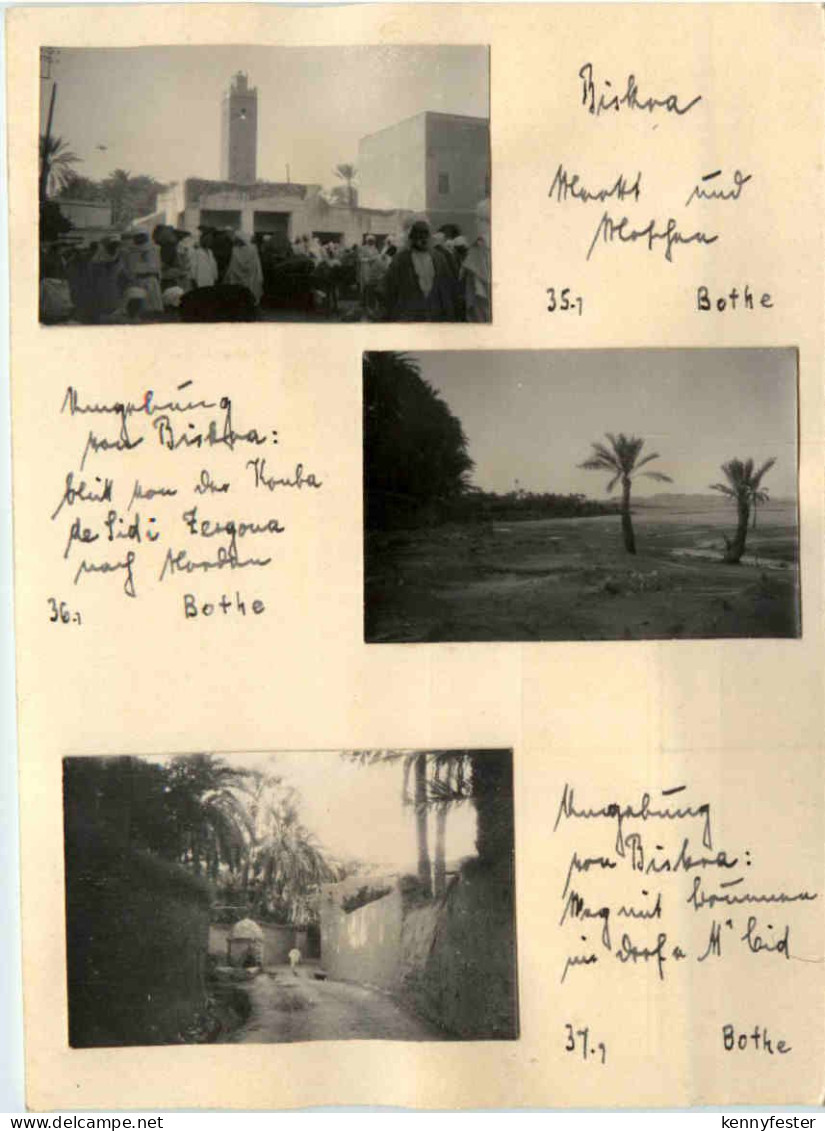 Biskra
Markt und
Moschee
35.) Bothe
Umgebung
von Biskra:
blick von der Kouba
de Sidi Zergoua
nach Norden
36.) Bothe
Umgebung
von Biskra:
Weg mit brunnen
im dorfe M'Cid
37.) Bothe
kennyfester
www.delcampe.net